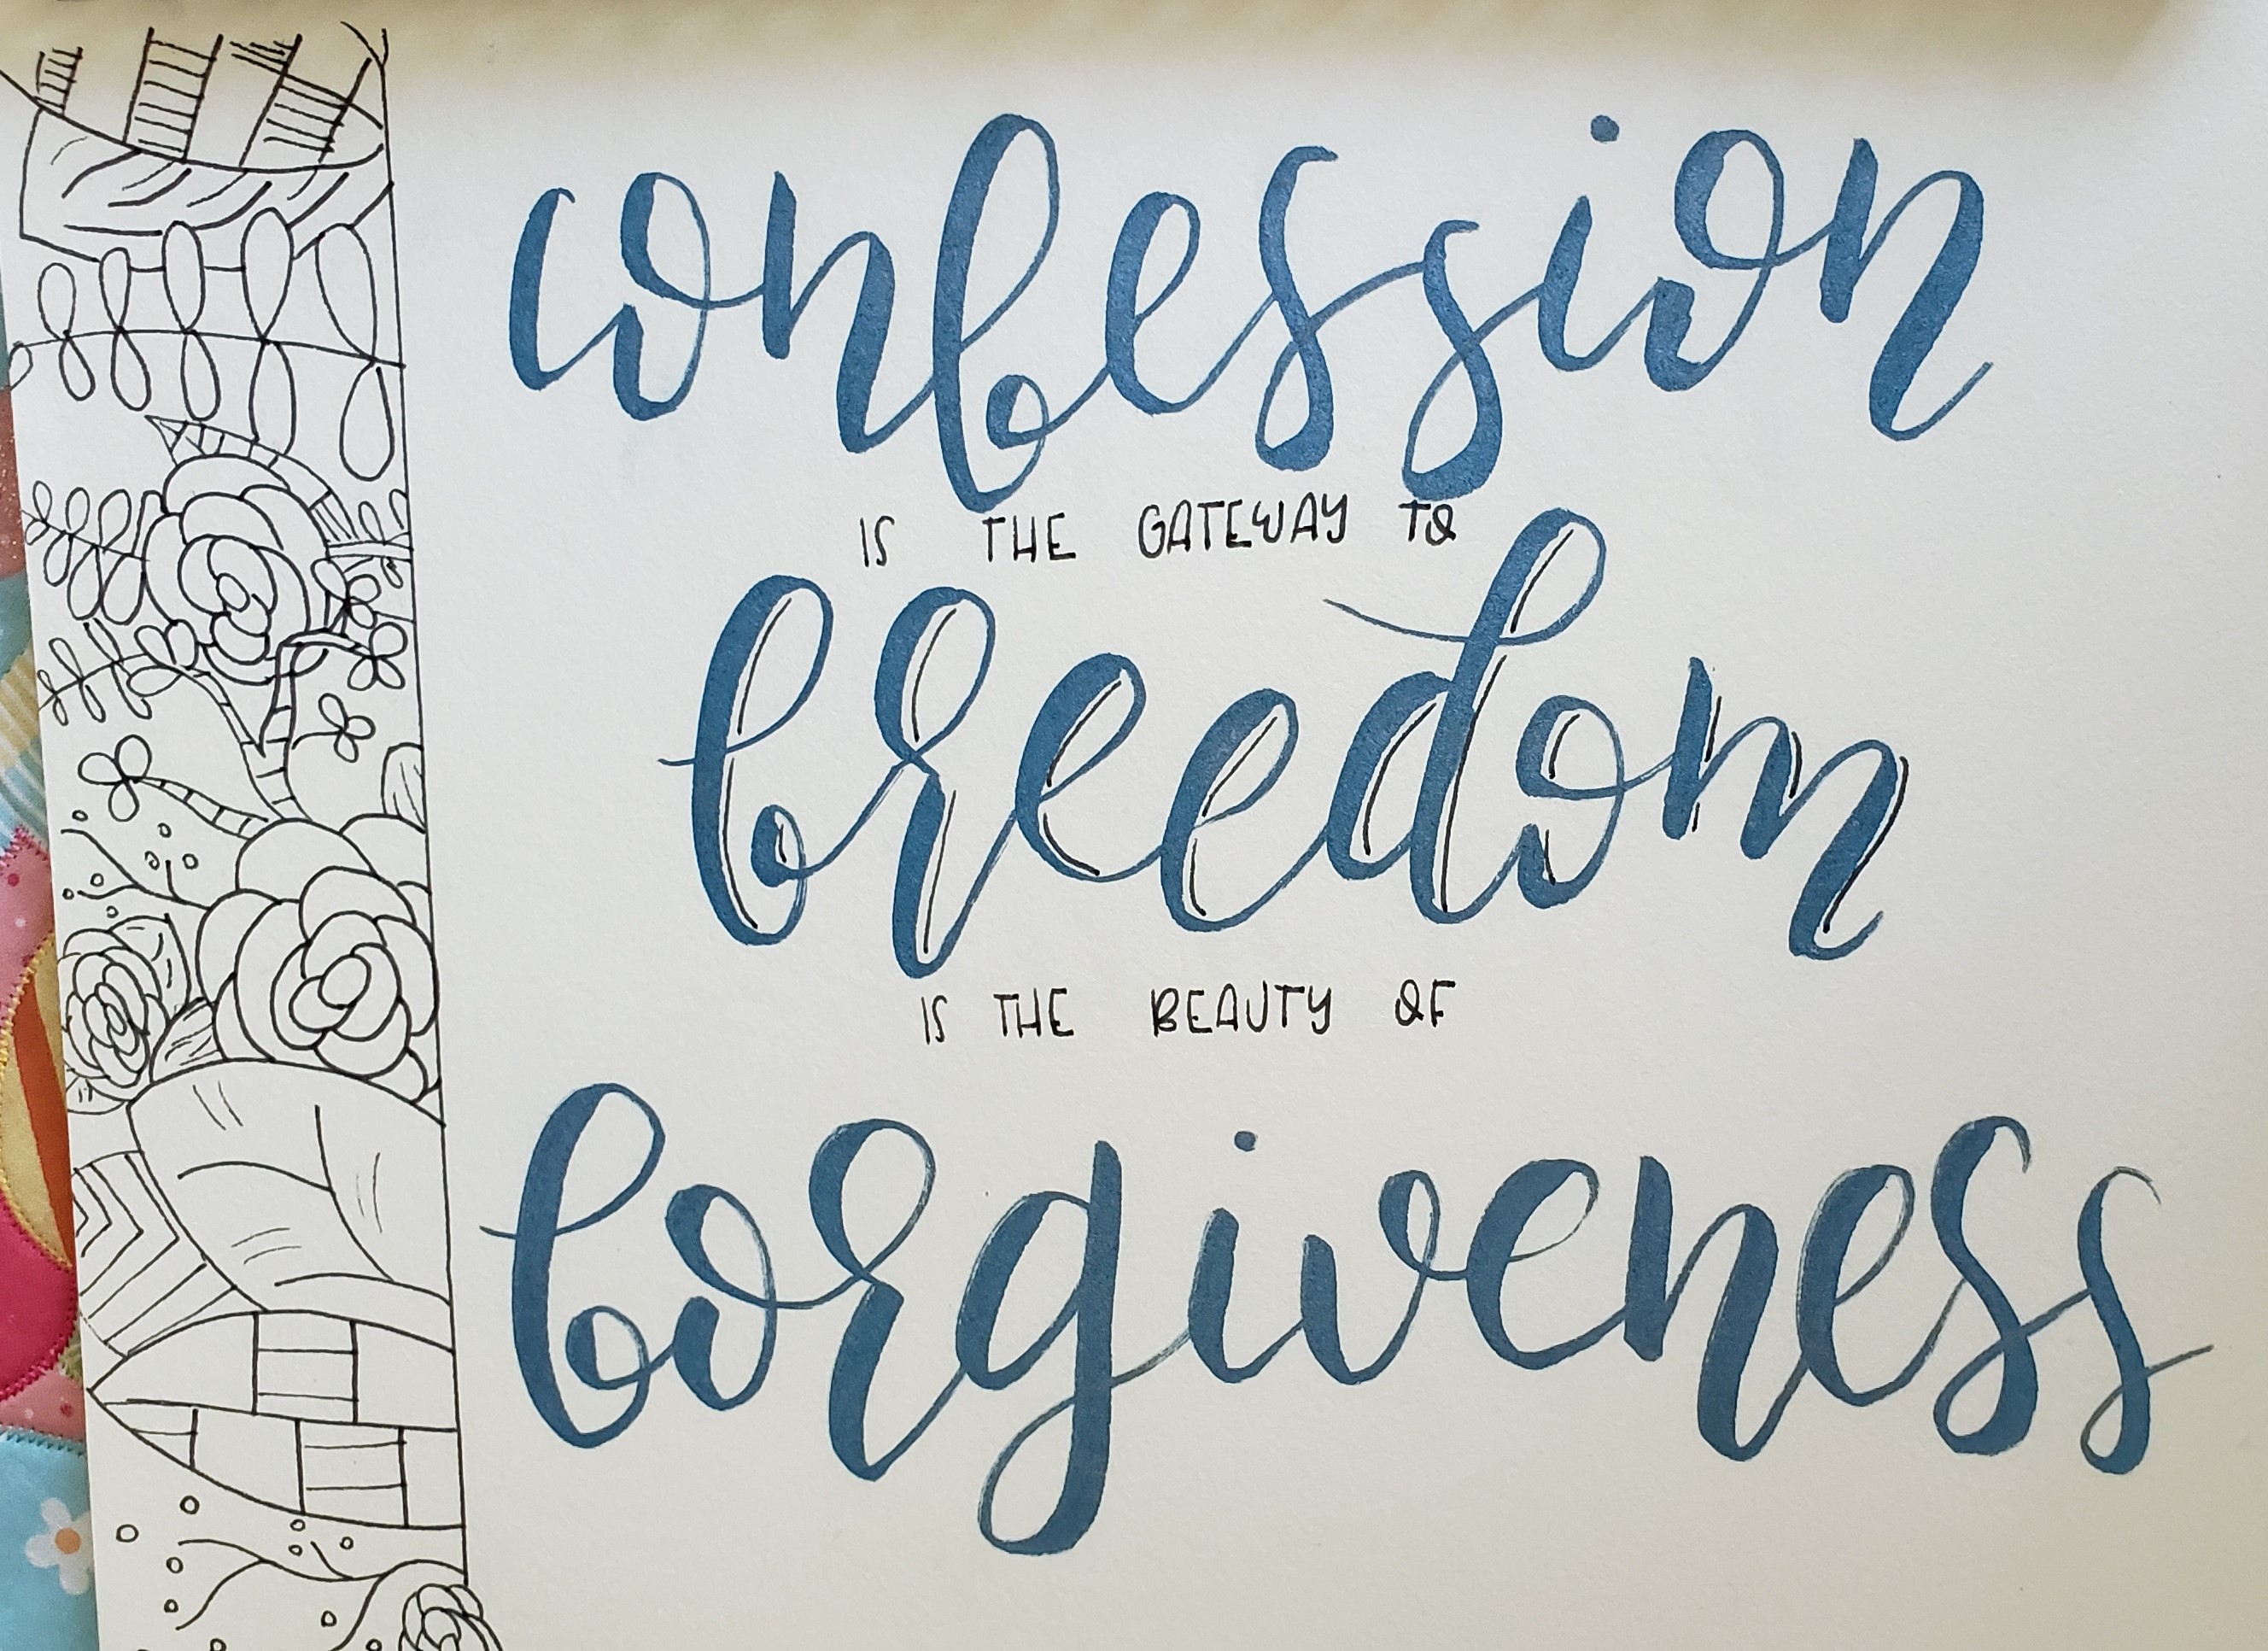 confession
IS THE GATEWAY TO
freedom
IS THE BEAUTY OF
forgiveness